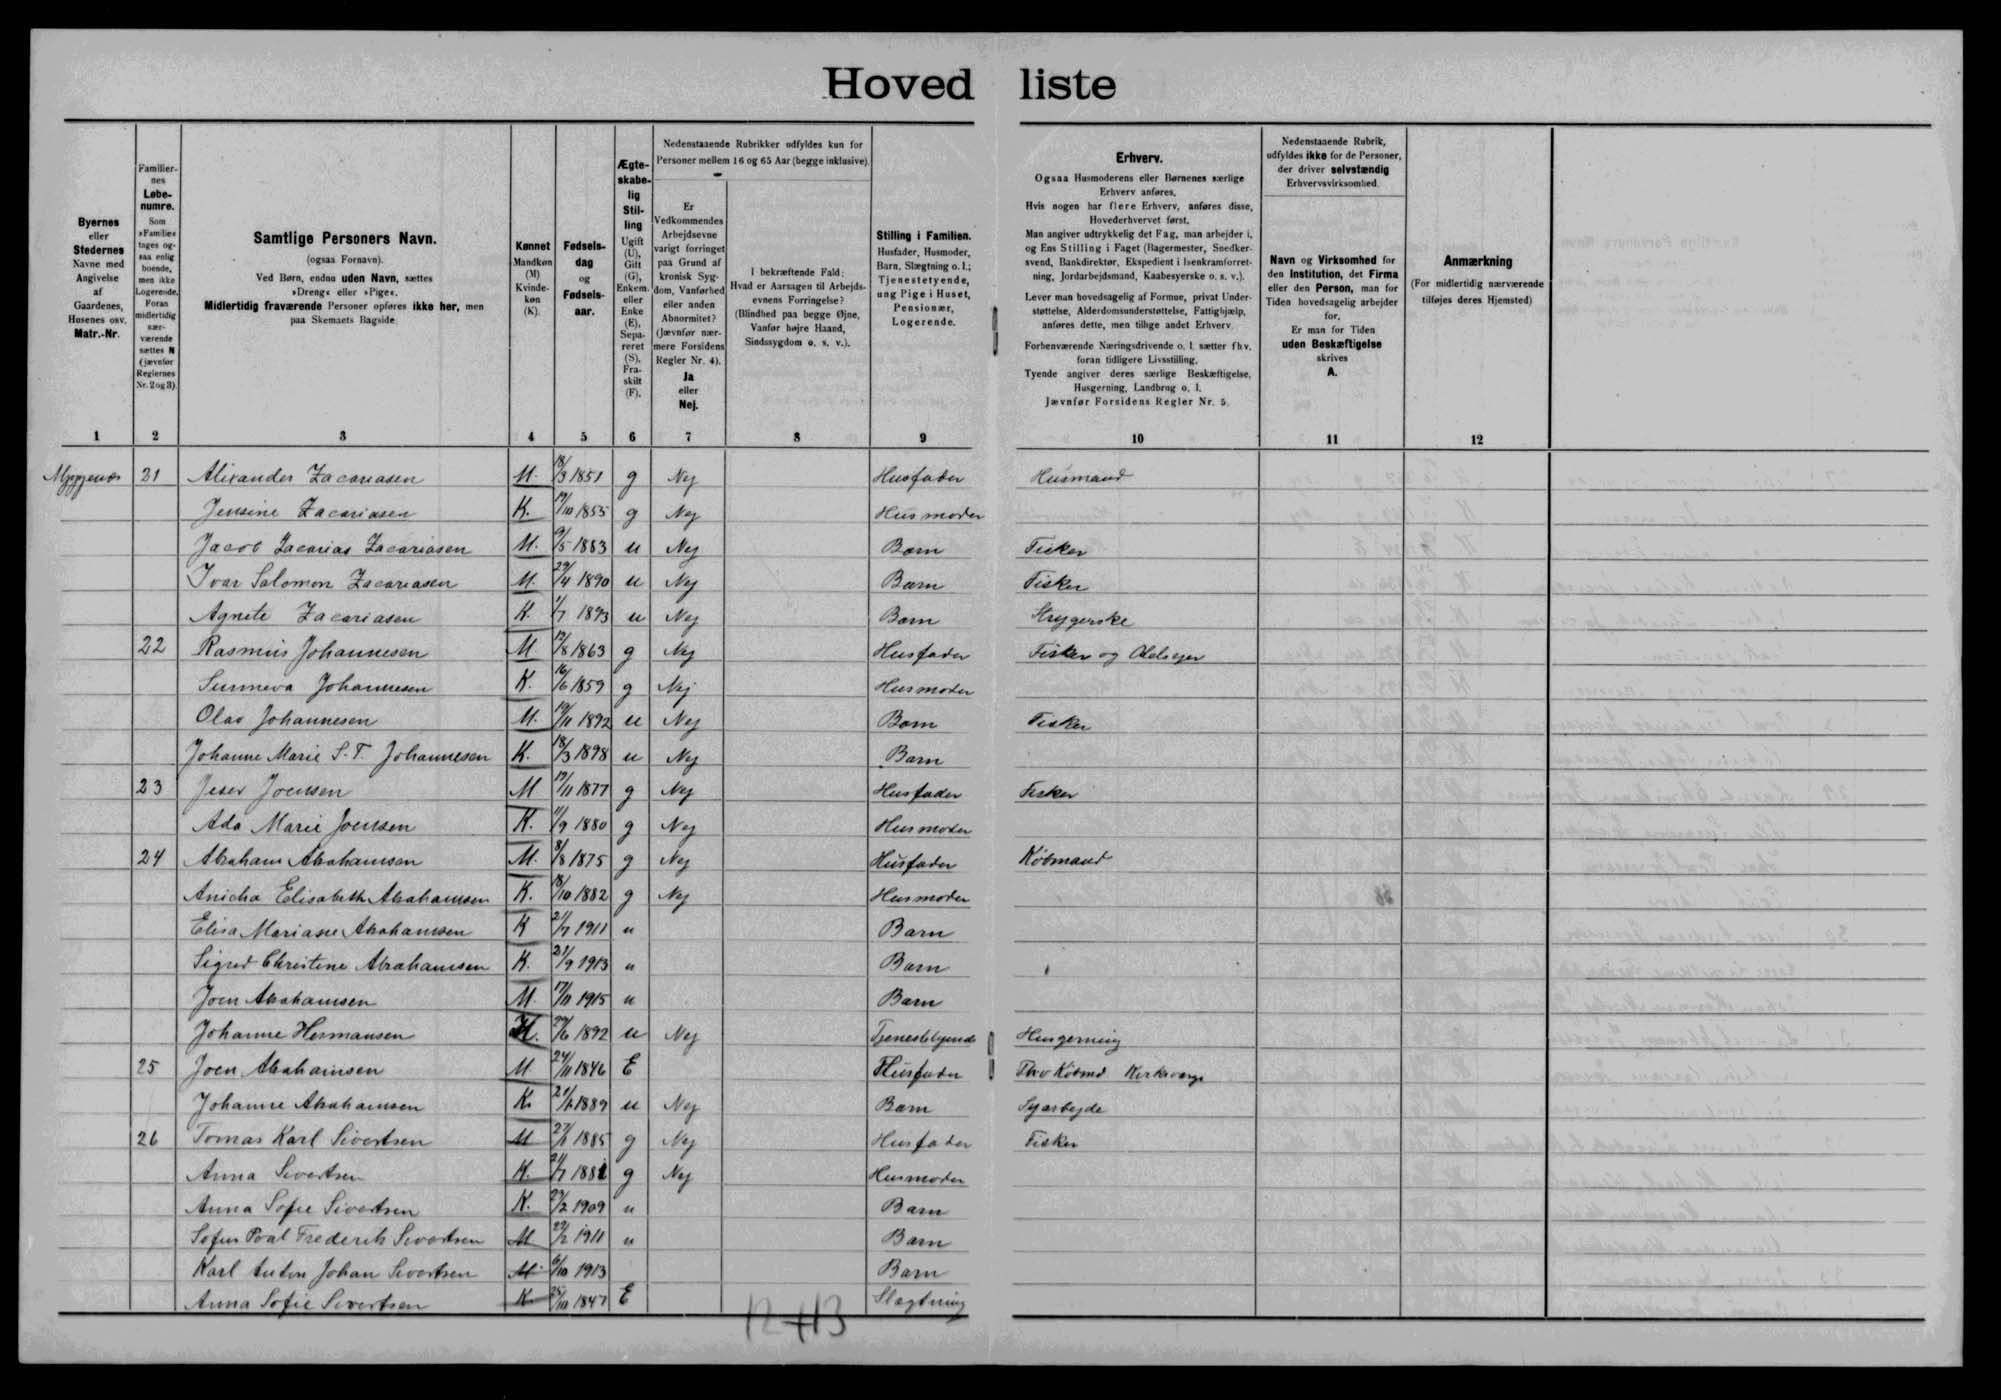 Hoved liste
Byernes
eller
Stedernes
Navne med
Angivelse
af
Gaardenes,
Husenes osv.
Matr.-Nr.
Familier-
nes
Løbe-
numre.
Som
»Familie«
tages og-
saa enlig
boende,
men ikke
Logerende.
Foran
midlertidig
nær-
værende
sættes N
(jævnfør
Reglernes
Nr. 2 og 3).
Samtlige Personers Navn.
(ogsaa Fornavn).
Ved Børn, endnu uden Navn, sættes
»Dreng« eller »Pige«.
Midlertidig fraværende Personer opføres ikke her, men
paa Skemaets Bagside.
Kønnet
Mandkøn
(M)
Kvinde-
køn
(K).
Fødsels-
dag
og
Fødsels-
aar.
Ægte-
skabe-
lig
Stil-
ling
Ugift
(U),
Gift
(G),
Enkem.
eller
Enke
(E),
Sepa-
reret
(S),
Fra-
skilt
(F).
Nedenstaaende Rubrikker udfyldes kun for
Personer mellem 16 og 65 Aar (begge inklusive).
Er
Vedkommendes
Arbejdsevne
varigt forringet
paa Grund af
kronisk Syg-
dom, Vanførhed
eller anden
Abnormitet?
(Jævnfør nær-
mere Forsidens
Regler Nr. 4).
Ja
eller
Nej.
I bekræftende Fald:
Hvad er Aarsagen til Arbejds-
evnens Forringelse?
(Blindhed paa begge Øjne,
Vanfør højre Haand,
Sindssygdom o. s. v.).
Stilling i Familien.
Husfader, Husmoder,
Barn, Slægtning o. l.;
Tjenestetyende,
ung Pige i Huset,
Pensionær,
Logerende.
Erhverv.
Ogsaa Husmoderens eller Børnenes særlige
Erhverv anføres.
Hvis nogen har flere Erhverv, anføres disse,
Hovederhvervet først.
Man angiver udtrykkelig det Fag, man arbejder i,
og Ens Stilling i Faget (Bagermester, Snedker-
svend, Bankdirektør, Ekspedient i Isenkramforret-
ning, Jordarbejdsmand, Kaabesyerske o. s. v.).
Lever man hovedsagelig af Formue, privat Under-
støttelse, Alderdomsunderstøttelse, Fattighjælp,
anføres dette, men tillige andet Erhverv.
Forhenværende Næringsdrivende o. l. sætter fhv.
foran tidligere Livsstilling.
Tyende angiver deres særlige Beskæftigelse,
Husgerning, Landbrug o. l.
Jævnfør Forsidens Regler Nr. 5.
Nedenstaaende Rubrik,
udfyldes ikke for de Personer,
der driver selvstændig
Erhvervsvirksomhed.
Navn og Virksomhed for
den Institution, det Firma
eller den Person, man for
Tiden hovedsagelig arbejder
for.
Er man for Tiden
uden Beskæftigelse
skrives
A.
Anmærkning
(For midlertidig nærværende
tilføjes deres Hjemsted)
1 2 3 4 5 6 7 8 9 10 11 12
21 Alixander Zacariasen M. 18/3 1851 g Nej Husfader Husmand
Jensine Zacariasen K. 19/10 1855 g Nej Husmoder
Jacob Zacarias Zacariasen M. 9/5 1883 u Nej Barn Fisker
Ivar Salomon Zacariasen M. 29/4 1890 u Nej Barn Fisker
Agnete Zacariasen K. 1/7 1893 u Nej Barn Strygerske
22 Rasmus Johannesen M. 12/8 1863 g Nej Husfader Fisker og
Sunneva Johannesen K. 16/6 1859 g Nej Husmoder
Olav Johannesen M. 19/11 1892 u Nej Barn Fisker
Johanne Marie S. T. Johannesen K. 18/3 1898 u Nej Barn
23 Joensen M 19/11 1877 g Nej Husfader Fisker
Ada Marie Joensen K. 11/9 1880 g Nej Husmoder
24 Abraham Abrahamsen M. 8/8 1875 g Nej Husfader Købmand
Anicha Elisabeth Abrahamsen K. 18/10 1882 g Nej Husmoder
Elisa Mariane Abrahamsen K 21/7 1911 u Barn
Sigrid Christine Abrahamsen K. 21/9 1913 u Barn
Joen Abrahamsen M. 17/11 1915 u Barn
Johanne Hermansen K. 29/6 1892 u Nej Tjenestetyende Husgerning
25 Joen Abrahamsen M 24/11 1846 E Husfader Købmd Kirkeværge
Johanne Abrahamsen K. 21/6 1889 u Nej Barn Syarbejde
26 Tomas Karl Sivertsen M 27/1 1885 g Nej Husfader Fisker
Anna Sivertsen K. 21/7 1881 g Nej Husmoder
Anna Sofie Sivertsen K. 27/2 1909 u Barn
Sofus Poal Frederik Sivertsen M 22/2 1911 u Barn
Karl Anton Johan Sivertsen M 6/10 1913 Barn
Anna Sofie Sivertsen K 25/10 1847 E Slægtning
12 + 13